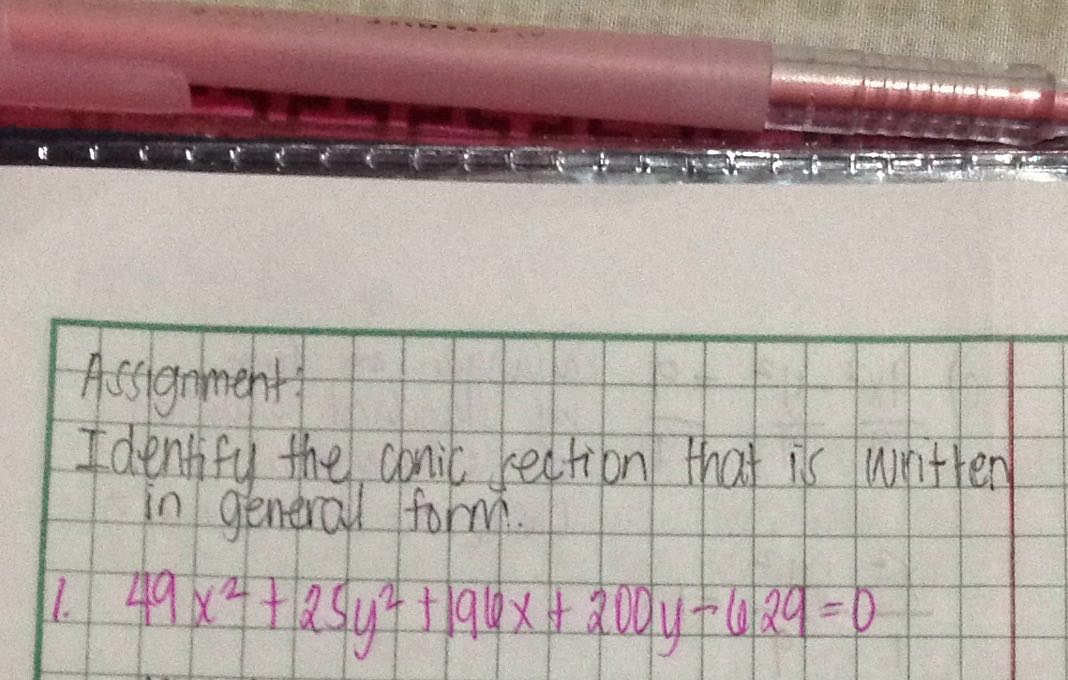 Assignment:
Identify the conic section that is written
in general form.
1. 49x² + 25y² + 196x + 200y - 629 = 0